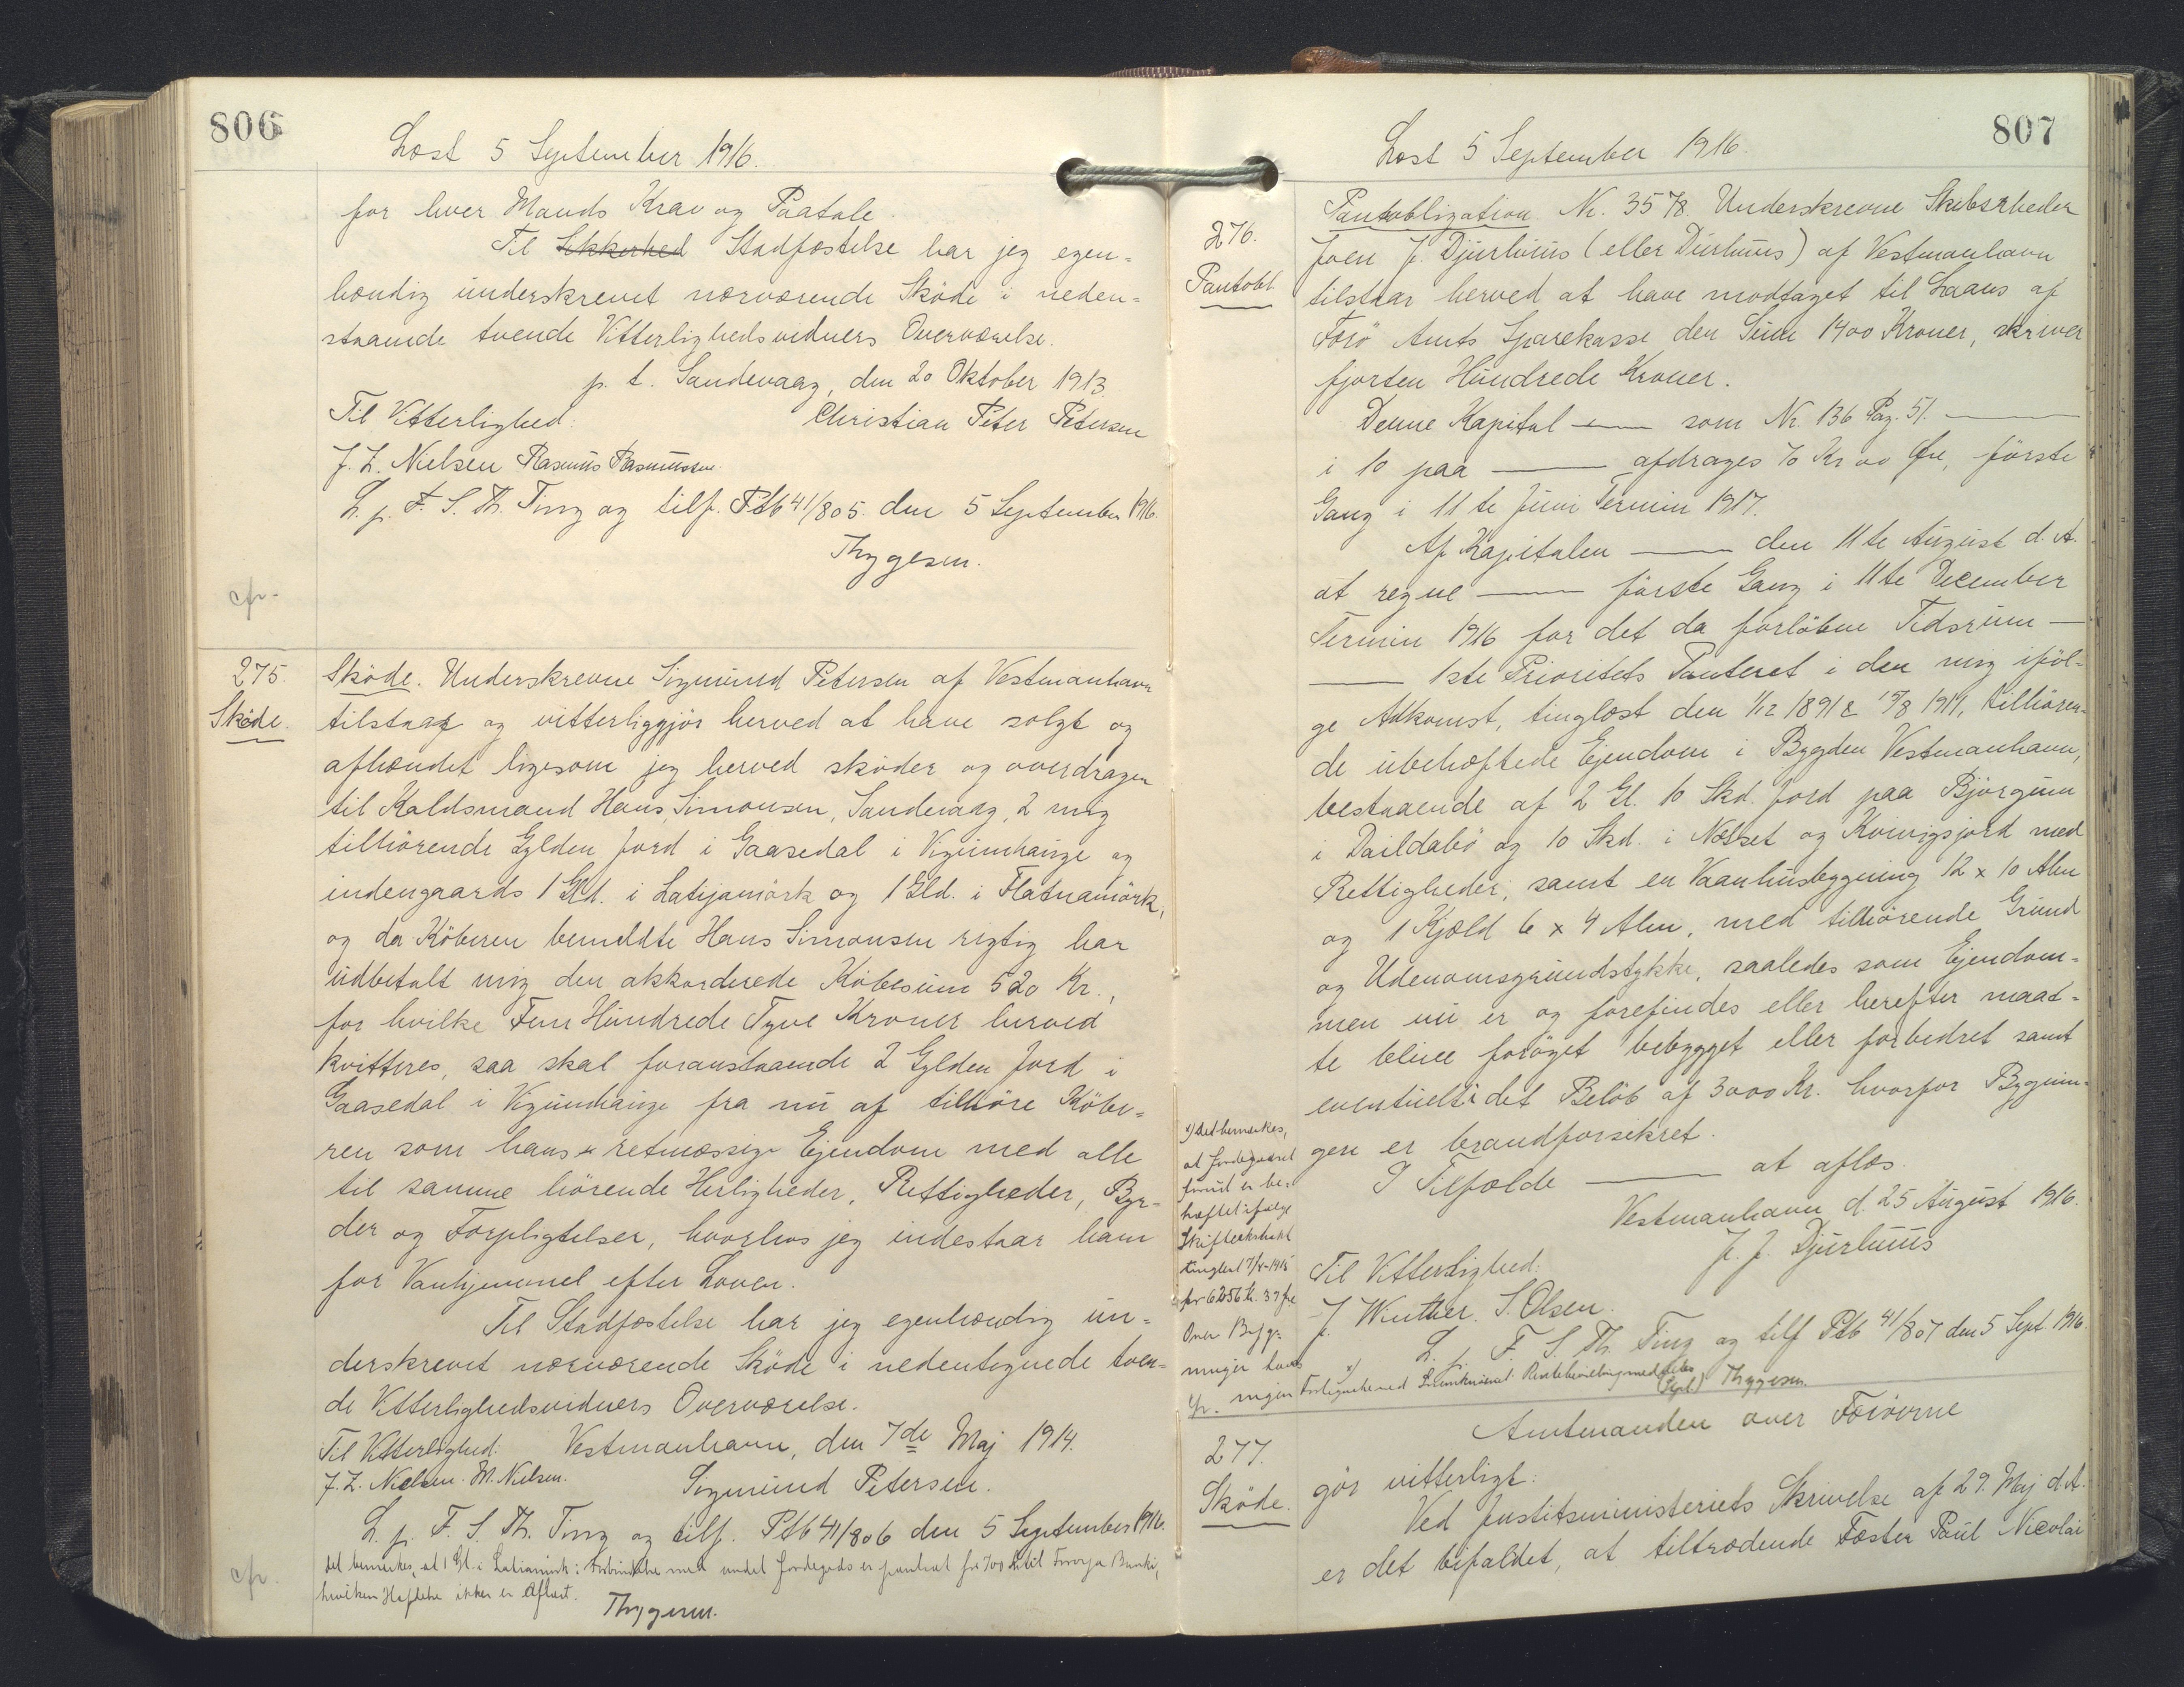 806
Læst 5 September 1916.
for hver Mands Krav og Paatale.
Til Sikkerhed Stadfæstelse har jeg egen-
hændig underskrevet nærværende Sköde i neden-
staaende tvende Vitterlighedsvidners Overværelse.
p. t. Sandevaag, den 20 Oktober 1913.
Til Vitterlighed: Christian Peter Petersen
J. Z. Nielsen Rasmus Rasmussen.
L. p. F. S. Th. Ting og tilf. Ptb 41/805. den 5 September 1916.
Thygesen.
cfr.
275.
Sköde.
Sköde. Underskrevne Sigmund Petersen af Vestmanhavn
tilstaar og vitterliggjör herved at have solgt og
afhændet ligesom jeg herved sköder og overdrager
til Kaldsmand Hans Simonsen, Sandevaag, 2 mig
tilhörende Gylden Jord i Gaasedal i Vigumhauge og
indengaards 1 Gld. i Latijamörk og 1 Gld. i Flatnamörk,
og da Köberen bemeldte Hans Simonsen rigtig har
udbetalt mig den akkorderede Köbesum 520 Kr.,
for hvilke Fem Hundrede Tyve Kroner herved
kvitteres, saa skal foranstaaende 2 Gylden Jord i
Gaasedal i Vigumhauge fra nu af tilhöre Köbe-
ren som hans retmæssige Ejendom med alle
til samme hörende Herligheder, Rettigheder, Byr-
der og Forpligtelser, hvorhos jeg indestaar ham
for Vanhjemmel efter Loven.
Til Stadfæstelse har jeg egenhændig un-
derskrevet nærværende Sköde i nedentegnede tven-
de Vitterlighedsvidners Overværelse.
Til Vitterlighed: Vestmanhavn, den 7de Maj 1914.
J. Z. Nielsen. M. Nielsen. Sigmund Petersen.
L. p. F. S. Th. Ting og tilf. Ptb 41/806 den 5 September 1916.
Det bemærkes, at 1 Gl. i Latiamörk i Forbindelse med andet Jordegods er pantsat for 700 Kr til Föroya Banki,
hvilken Hæftelse ikke er aflæst.
Thygesen.
cfr.
807
Læst 5 September 1916.
276.
Pantobl.
Pantobligation Nr. 3578. Underskrevne Skibsrheder
Joen J. Djurhuus (eller Durhuus) af Vestmanhavn
tilstaar herved at have modtaget til Laans af
Færö Amts Sparekasse den Sum 1400 Kroner, skriver
fjorten Hundrede Kroner.
Denne Kapital — som Nr. 136 Pag. 51. —
i 10 paa — afdrages 70 Kr 00 Øre, förste
Gang i 11te Juni Termin 1917.
Af Kapitalen — den 11te August d. A.
at regne — förste Gang i 11te December
Termin 1916 for det da forlöbne Tidsrum —
— 1ste Prioritets Panteret i den mig ifölge
ge Adkomst, tinglæst den 1/12 1891 & 15/8 1911, tilhören-
de ubehæftede Ejendom i Bygden Vestmanhavn,
bestaaende af 2 Gl. 10 Skd. Jord paa Björgum
i Daildabö og 10 Skd. i Nesset og Kvingsjord med
Rettigheder, samt en Vaanhusbygning 12 x 10 Alen
og 1 Kjæld 6 x 4 Alen, med tilhörende Grund
og Udenomsgrundstykke, saaledes som Ejendom-
men nu er og forefindes eller herefter maat-
te blive foröget bebygget eller forbedret samt
eventuelt i det Belöb af 3000 Kr. hvorfor Bygnin-
gen er brandforsikret.
I Tilfælde — at aflæs.
Vestmanhavn d. 25 August 1916.
Til Vitterlighed: J. J. Djurhuus
J. Winther. S. Olsen.
L. p. F. S. Th. Ting og tilf Ptb 41/807 den 5 Sept. 1916.
x) Det bemærkes,
at Jordegodset
forud er be-
hæftet ifølge
Skifteekstrakt
tinglæst 17/4-1915
for 6256 Kr. 37 Øre
Over Byg-
ninger haves
ingen
Thygesen.
cfr.
277.
Sköde.
Amtmanden over Færöerne
gör vitterligt:
Ved Justitsministeriets Skrivelse af 29. Maj d. A.
er det bifaldet, at tiltrædende Fæster Poul Nicolai